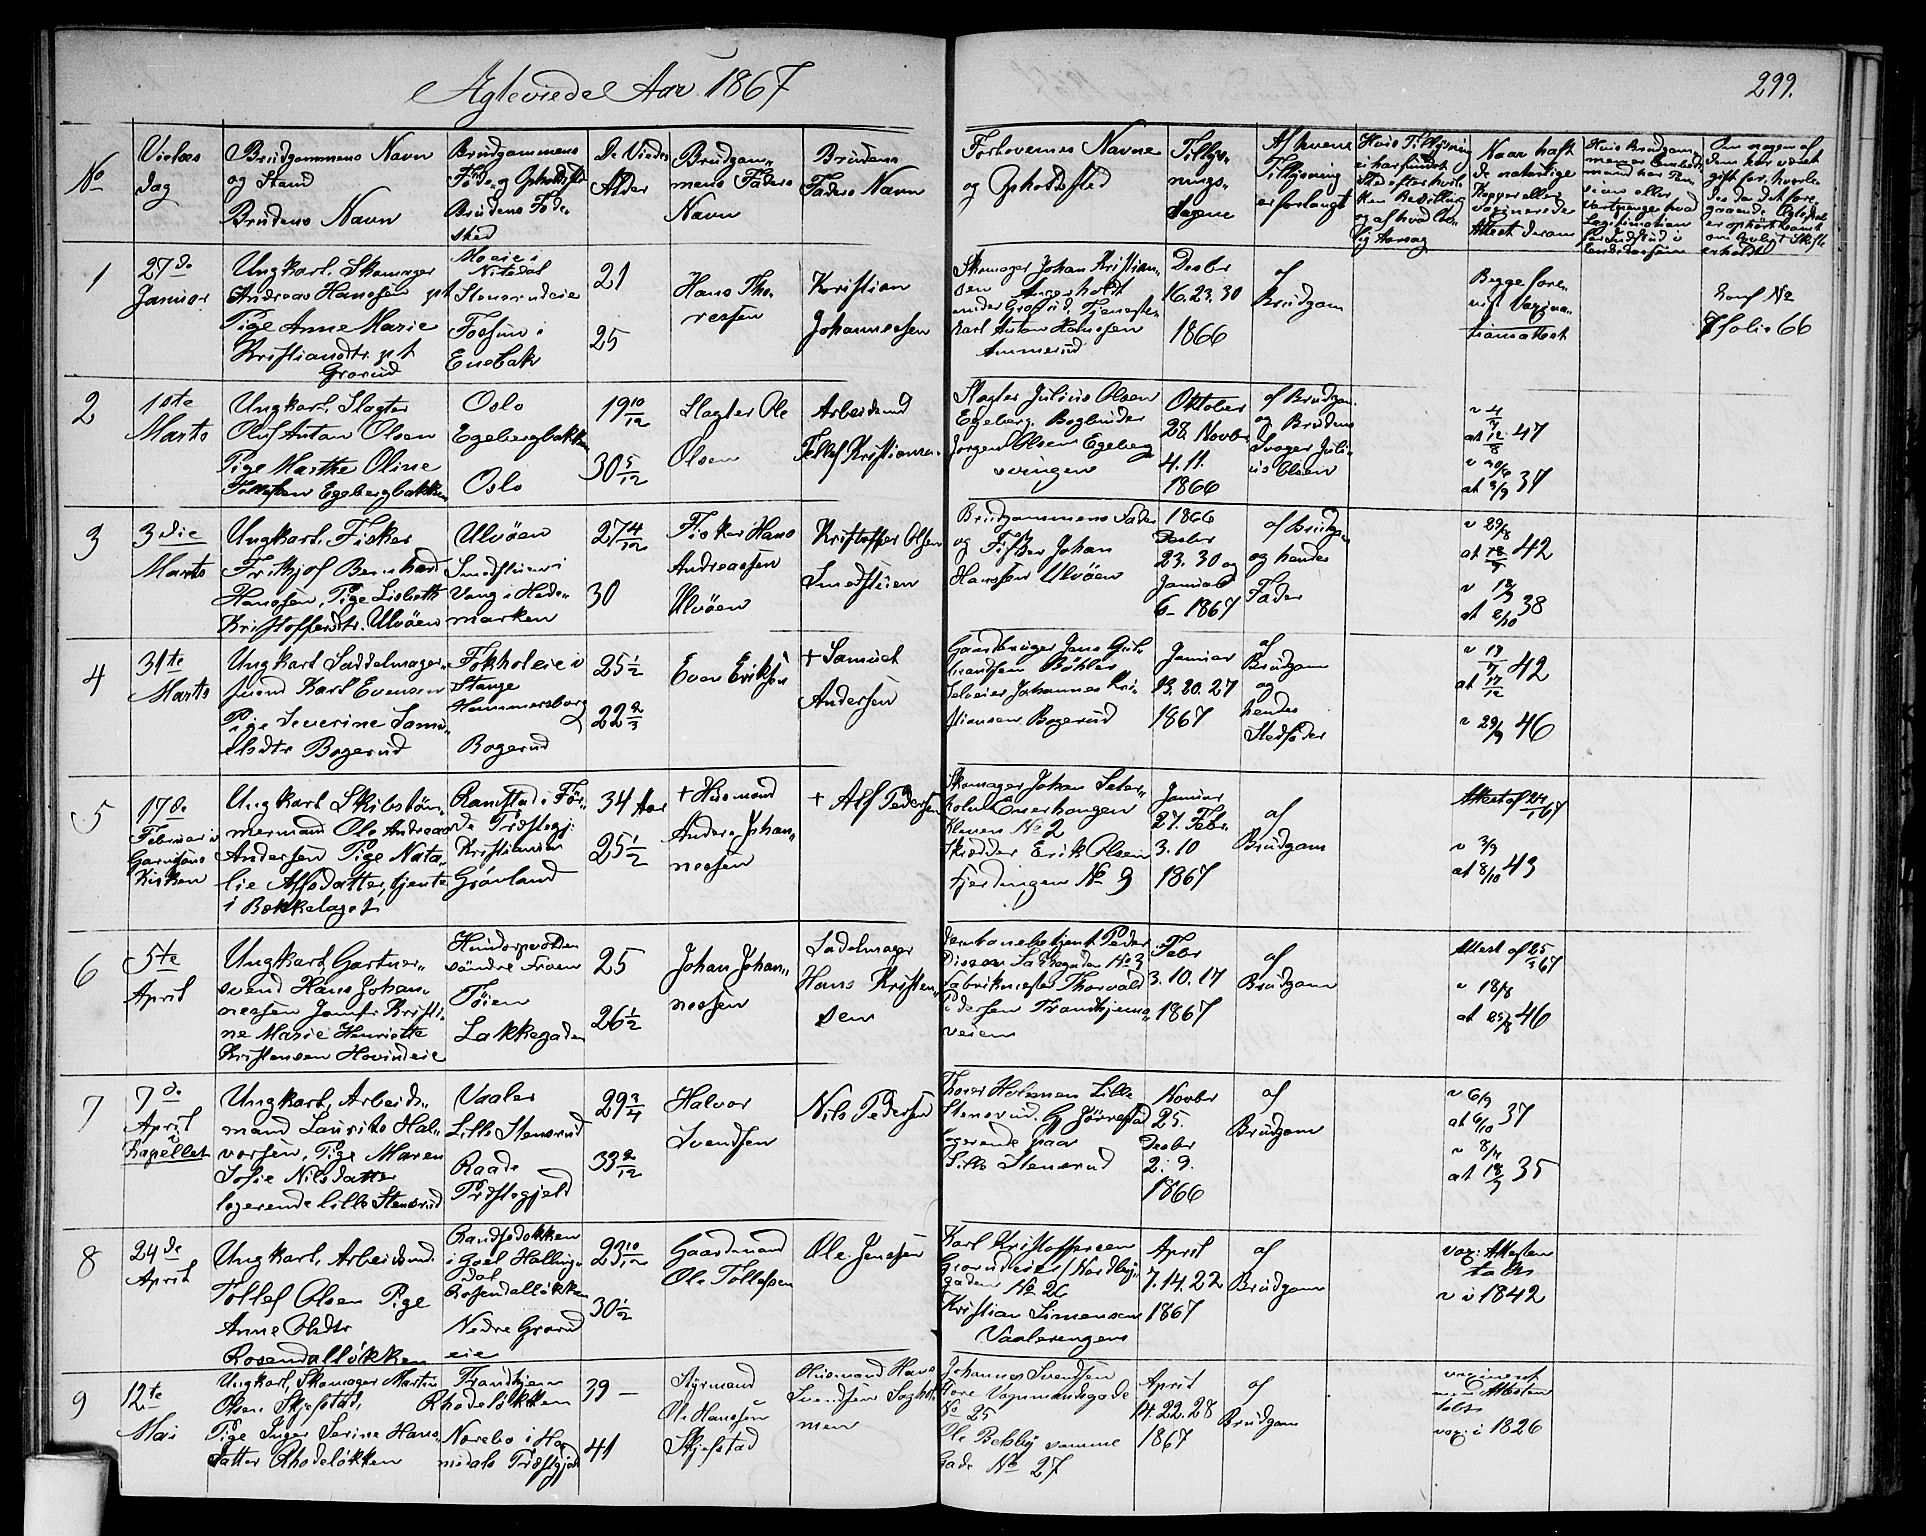 Ægteviede Aar 1867
299.
No
Vielses
dag
Brudgommens Navn
og Stand
Brudens Navn
Brudgommens
Føde og Opholdssted
Brudens Føde-
sted
De Viedes
Alder
Brudgom-
mens Faders
Navn
Brudens
Faders Navn
Forlovernes Navne
og Opholdsted
Tillys-
nings-
Dagene
Af hvem
Tillysning
er forlangt
Hvis Tillysning
ei har fundet
Sted efter hvil-
ken Bevilling
og af hvad lov-
lig Aarsag
Naar haft
de naturlige
Kopper eller
vaxinerede
Attest derom
Hvis Brudgom-
men er
mand har
sion eller
Vartpenge hvad
Legitimation
for Indskud i
Enkekassen
Om nogen af
dem har været
gift før, hvorle-
des da det fore-
gaaende Ægteskab
er ophørt samt
om lovligt Skifte
er holdt
1
27de
Januar
Ungkarl, Skomager
Andreas Hanssen pt
Pige Anne Marie
Kristiansdtr. pt
Grorud
Moeie i
Nitedal
Stensrudeie
Fossum i
Enebak
21
25
Hans Tho-
ressen
Kristian
Johannessen
Skomager Johan Kristian-
sen
under Grorud, Tjeneste-
karl Anton Hanssen
Ammerud
Desbr
16. 23. 30
1866
af
Brudgom
Begge fore-
vist Vaxina-
tionsattest
Conf No
7 folio 66
2
1ste
Marts
Ungkarl, Slagter
Oluf Anton Olsen
Pige Marthe Oline
Tollefsen Egebergbakken
Oslo
Egebergbakken
Oslo
19 10/12
30 5/12
Slagter Ole
Olsen
Arbeidsmd
Tollef Kristiansen
Slagter Julius Olsen
Egeberg, Bogbinder
Jørgen Olsen Egeberg
svingen
Oktober
28. Novbr
4. 11.
1866
af Brudgom
og Brudens
Svoger Juli-
us Olsen
v 4/7
at 12/8 47
v 20/6
at 3/9 37
3
3die
Marts
Ungkarl, Fisker
Fritjof Bernhard
Hanssen, Pige Lisbeth
Kristoffersdtr. Ulvøen
Ulvøen
Smedstuen i
Vang i Hede-
marken
27 4/12
30
Fisker Hans
Andreassen
Ulvøen
Kristoffer Olsen
Smedstuen
Brudgommens Fader
og Fisker Johan
Hanssen Ulvøen
1866
Desber
23. 30 og
Januar
6 - 1867
af Brudgom
og hendes
Fader
v 29/8
at 18/9 42
v 18/9
at 2/10 38
4
31te
Marts
Ungkarl Saddelmager-
svend Karl Evensen
Pige Severine Samu-
elsdtr Bogerud
Fokholeie i
Stange
Hammersborg
Bogerud
25 1/2
22 2/3
Even Eriksen
+ Samuel
Andersen
Gaardbruger Jens Gul-
brandsen Bøhler
Selveier Johannes Kri-
stiansen Bogerud
Januar
13. 20. 27
1867
af
Brudgom
og
hendes
Stedfader
v 17/7
at 17/12 42
v 29/9 46
5
17de
Februar i
Garnisons
Kirken
Ungkarl Skibstøm-
mermand Ole Andreas
Andersen Pige Nata-
lie Alfsdatter, tjente
i Bækkelaget
Ramstad i Før-
de Præstegj:
Kristiania
Grønland
34 Aar
25 1/2
+ Husmand
Anders Johan-
nessen
+ Alf Pedersen
Skomager Johan Seter-
holm Enerhaugen
Klemen No 2
Skrædder Erik Olsen
Fjerdingen No 9
Januar
27. Febr.
3. 10
1867
af
Brudgom
Attest af 24/1 67
v 2/9
at 8/10 43
6
5te
April
Ungkarl, Gartner-
svend Hans Johan-
nessen Jomfr Kristi-
ne Marie Henriette
Kristensen Hovindeie
Hundorpvolden
søndre Froen
Tøien
Lakkegaden
25
26 1/2
Johan Johan-
nessen
Sadelmager
Hans Kristen-
sen
Jernbanebetjent Peder
Dissen Lakkegaden No 3
Fabrikmester Thorvald
Pedersen Trondhjems-
veien
Febr
3. 10. 17
1867
af
Brudgom
Attest af 25/3 67
v 18/8
at 25/8 46
7
7de
April
i
Kapellet
Ungkarl, Arbeids-
mand Laurits Hal-
vorsen, Pige Maren
Sofie Nilsdatter
logerende Lille Stensrud
Vaaler
Lille Stensrud
Raade
Præstegjeld
29 3/4
33 2/12
Halvor
Svendsen
Nils Pedersen
Thorer Halvorsen Lille
Stensrud. Gj Jørrestad
logerende paa
Lille Stensrud
Novbr
25.
Desbr
2. 9.
1866
af
Brudgom
v 6/9
at 6/10 37
v 8/4
at 18/9 35
8
24de
April
Ungkarl, Arbeidsmd.
Tollef Olsen Pige
Anne Olsdtr
Rosendalløkken
i Goel Halling-
dal
Rosendalløkken
Nedre Grorud
eie
23 10/12
30 1/2
Gaardmand
Ole Tollefsen
Ole Jenssen
Karl Kristoffersen
Grorudeie /Nordby-
gaden No 26
Kristian Simensen
Vaalerengen
April
7. 14. 22
1867
af
Brudgom
vax: Attesten
tabt
v i 1842
9
12te
Mai
Ungkarl, Skomager Martin
Olsen Skjefstad,
Pige Inger Serine Hans-
datter Rhodeløkken
Trondhjem
Rhodeløkken
Norebo i Ha-
medals Præstgjeld
39 —
41
Styrmand
Ole Hanssen
Skjefstad
Husmand Hans
Svendsen
men
Johannes Svendsen
Store Vognmandsgade
No 25
Ole Bekby samme
Gade No 27
April
14. 22. 28
1867
af
Brudgom
vaxineret
men Attesten
tabt
vax: i 1826